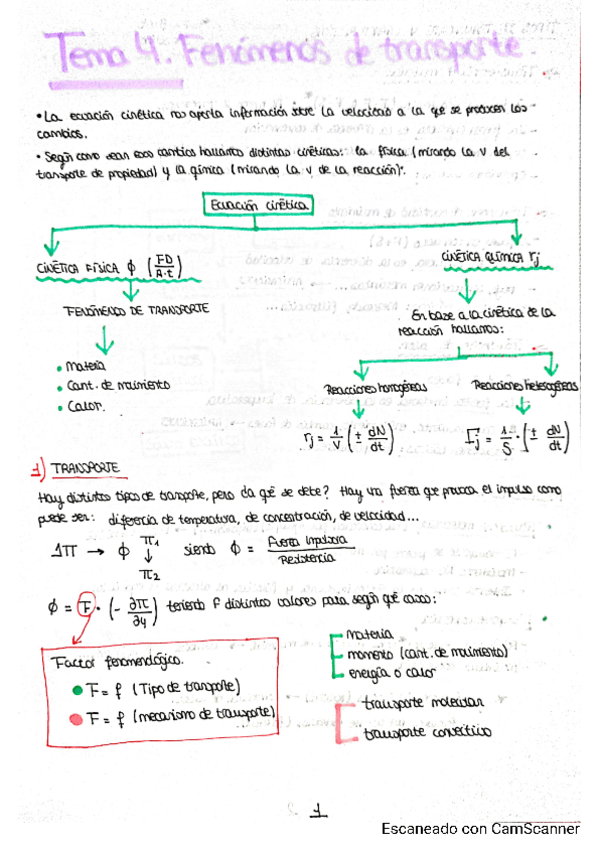 Tema 4. Fenómenos de transporte
• La ecuación cinética nos aporta información sobre la velocidad a la que se producen los
cambios.
• Según como sean esos cambios hallamos distintas cinéticas: la física (mirando la v del
transporte de propiedad) y la química (mirando la v de la reacción).
Ecuación cinética
CINÉTICA FÍSICA ϕ (FD/A·t)
CINÉTICA QUÍMICA rj
FENÓMENO DE TRANSPORTE
En base a la cinética de la
reacción hallamos:
• Materia
• Cant. de movimiento
• Calor.
Reacciones homogéneas
Reacciones heterogéneas
rj = 1/V (± dN/dt)
Γj = 1/S · (± dN/dt)
1) TRANSPORTE
Hay distintos tipos de transporte, pero ¿a qué se debe? Hay una fuerza que provoca el impulso como
puede ser: diferencia de temperatura, de concentración, de velocidad...
Δπ → ϕ π1 ↓ π2 siendo ϕ = Fuerza Impulsora / Resistencia
ϕ = F · (- ∂π/∂y) teniendo F distintos valores para según qué casos:
Factor fenomenológico.
F = f (Tipo de transporte)
F = f (mecanismo de transporte)
materia
momento (cant. de movimiento)
energía o calor
transporte molecular
transporte convectivo
1
Escaneado con CamScanner